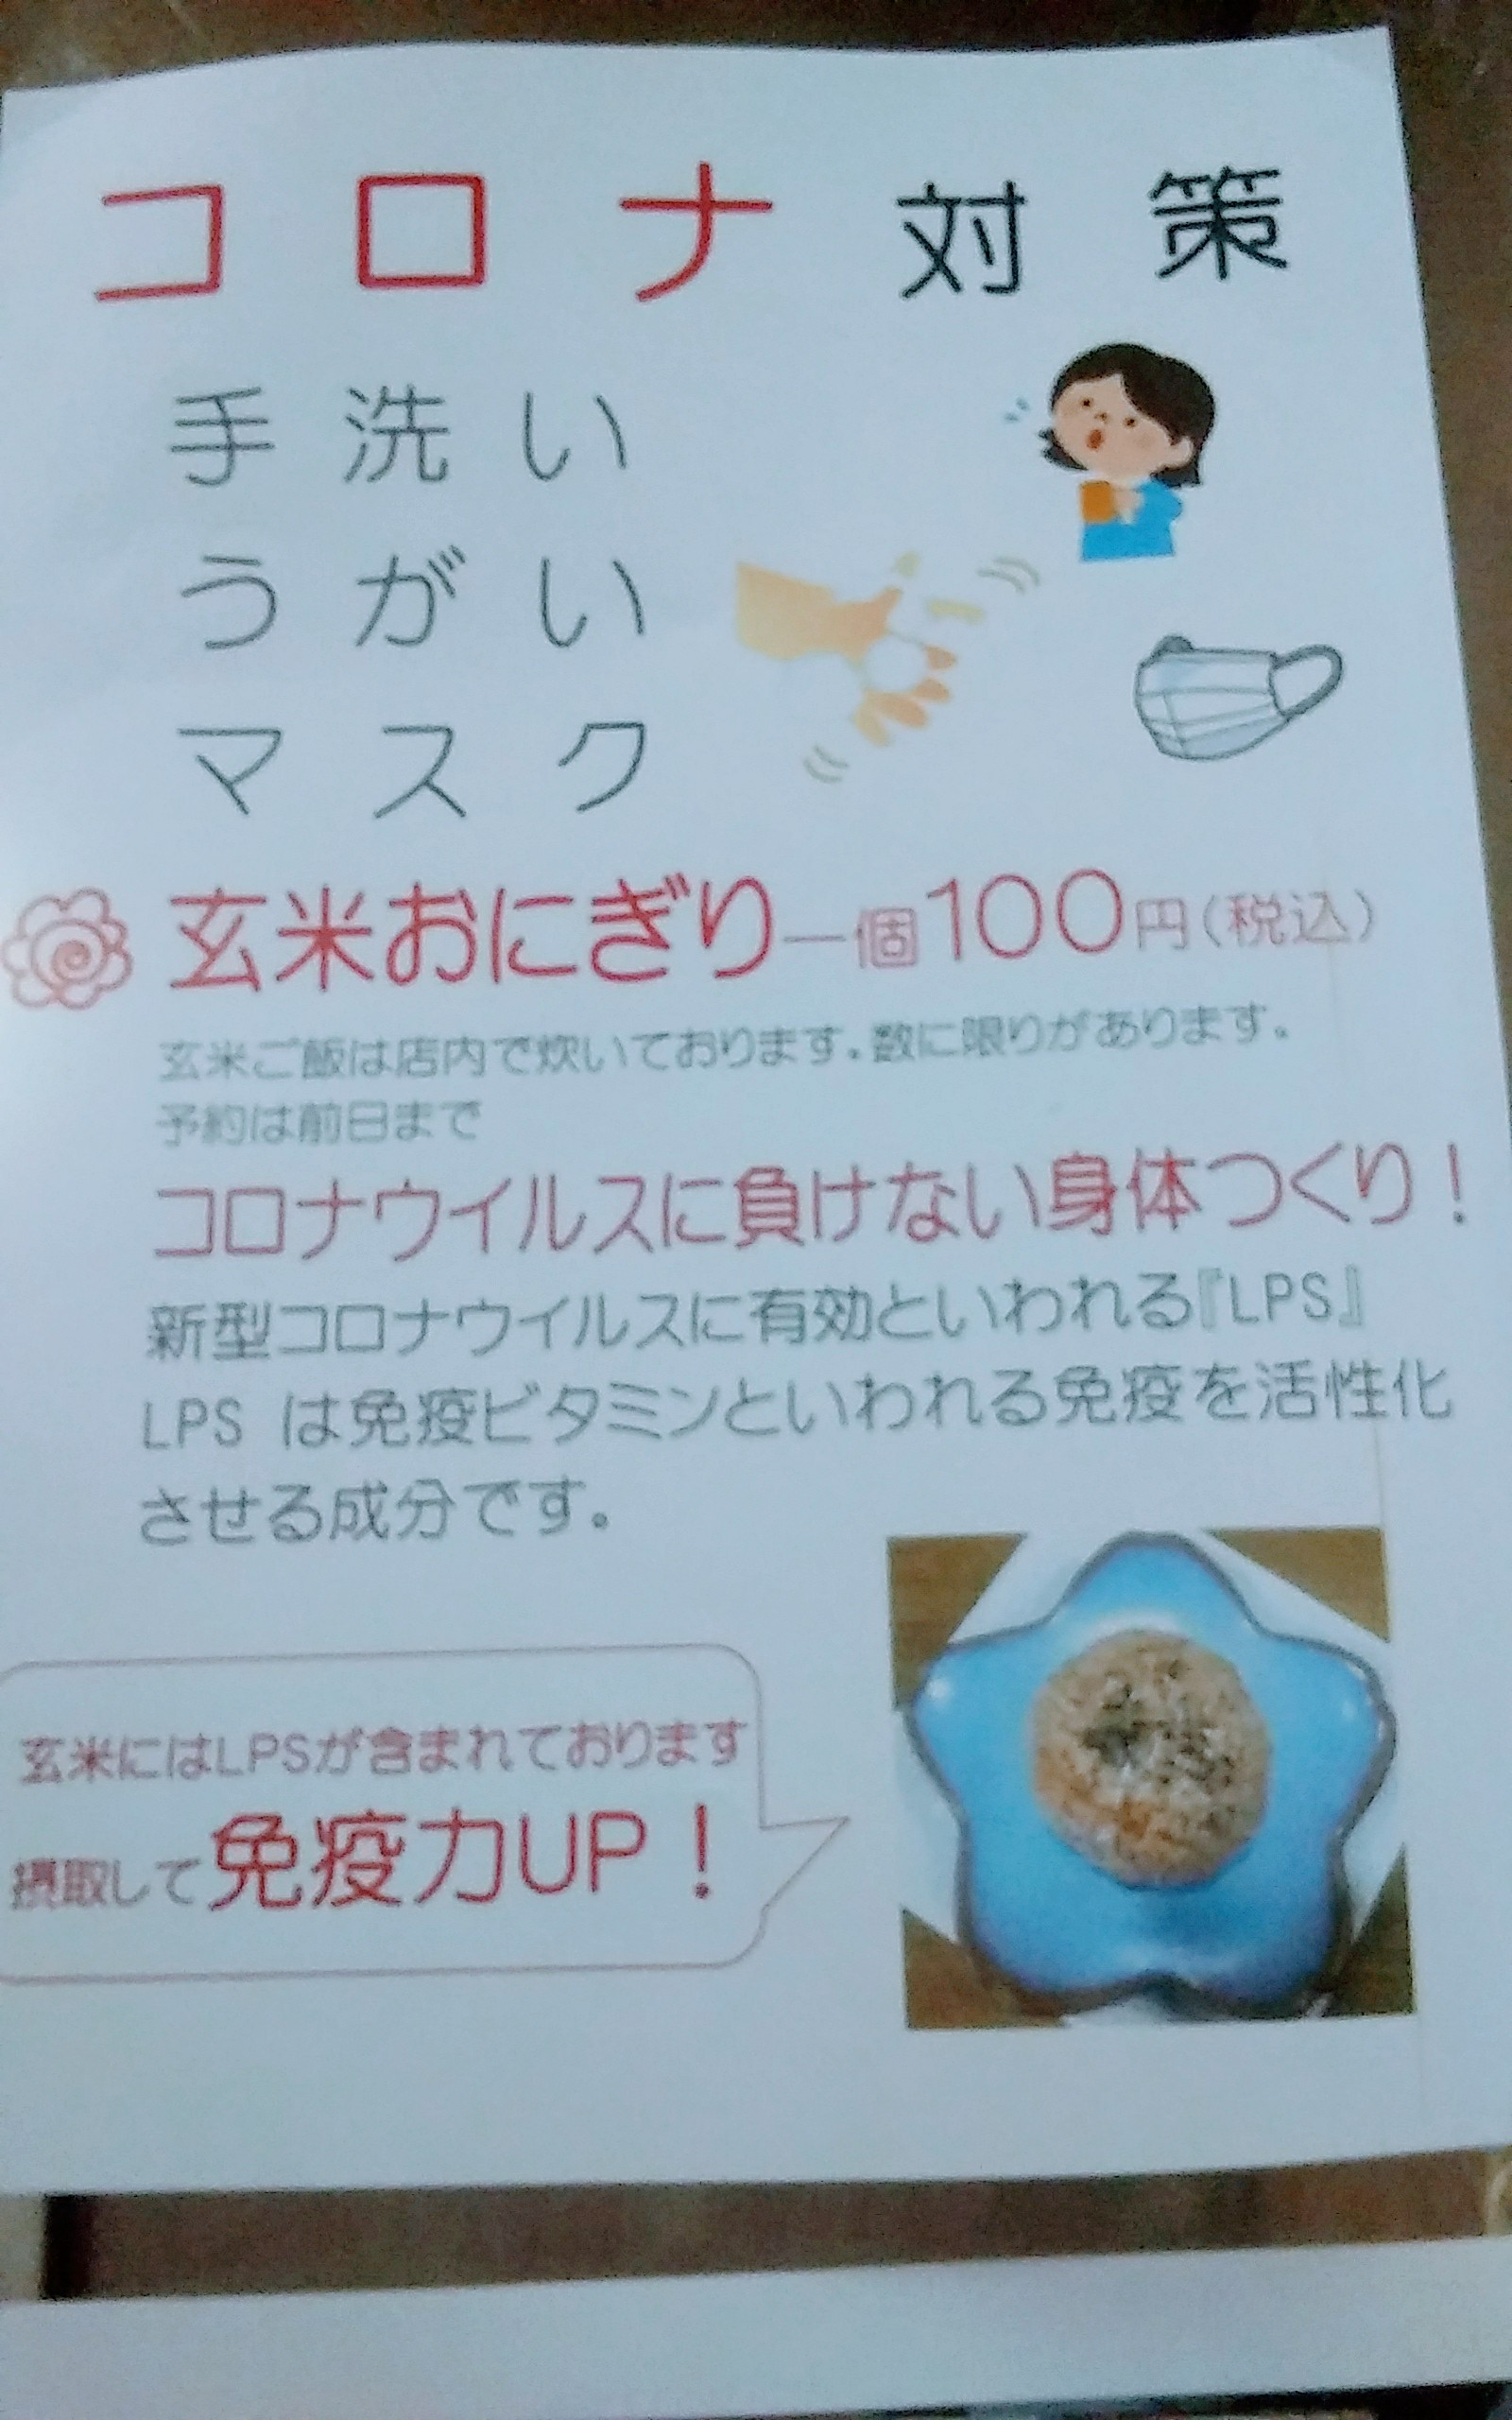 コロナ対策
手洗い
うがい
マスク
玄米おにぎり一個100円(税込)
玄米ご飯は店内で炊いております。数に限りがあります。
予約は前日まで
コロナウイルスに負けない身体つくり！
新型コロナウイルスに有効といわれる『LPS』
LPS は免疫ビタミンといわれる免疫を活性化
させる成分です。
玄米にはLPSが含まれております
摂取して免疫力UP！